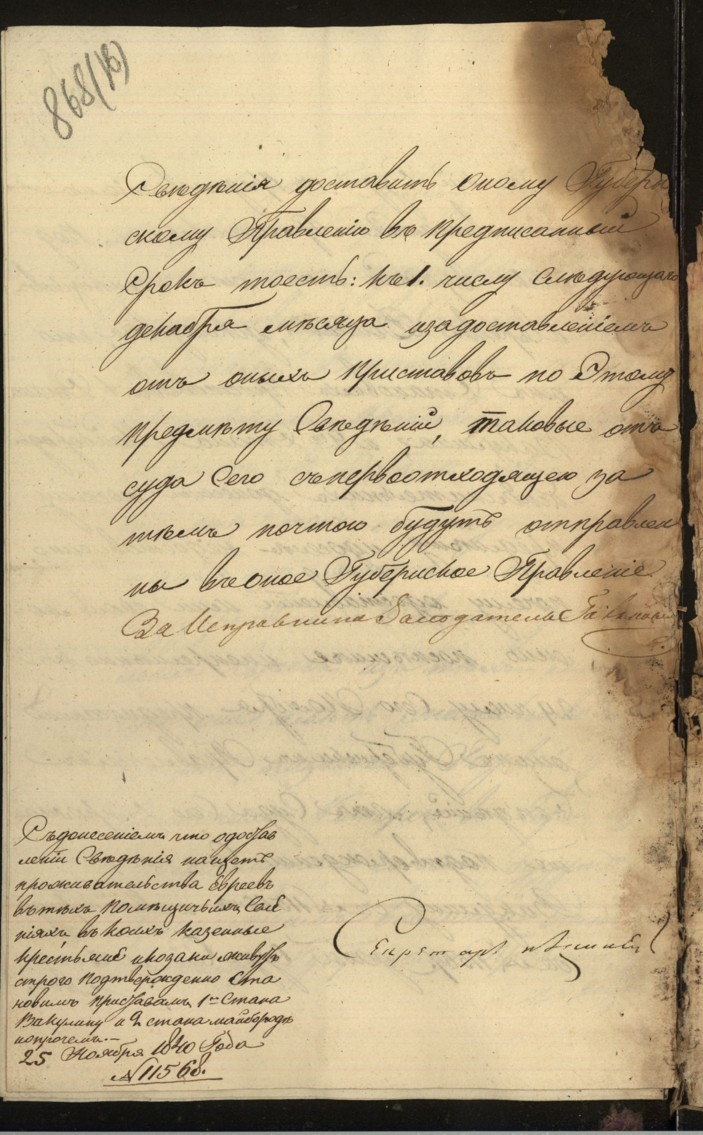 868(16)
Сведенія доставить оному Губерн
скому Правленію въ предписанный
срокъ тоесть: къ 1. числу следующаго
декабря месяца изадоставленіемъ
отъ оныхъ приставовъ по этому
предмету сведеній, таковые отъ
суда сего съпервоотходящею за
темъ почтою будутъ отправлен
ны въ оное Губернское Правленіе.
За Исправника Заседатель
Секретарь
Съдонесеніемъ что одостав
леніи сведенія насчетъ
проживательства евреевъ
втехъ помещичьихъ селе
ніяхъ вкоихъ казенные
крестьяне живутъ
строго подтверждено ста
новымъ приставамъ 1го стана
Вакулину и 2 стана Майбороде
ипрочемъ.
25 Ноября 1840 Года
№ 11568.